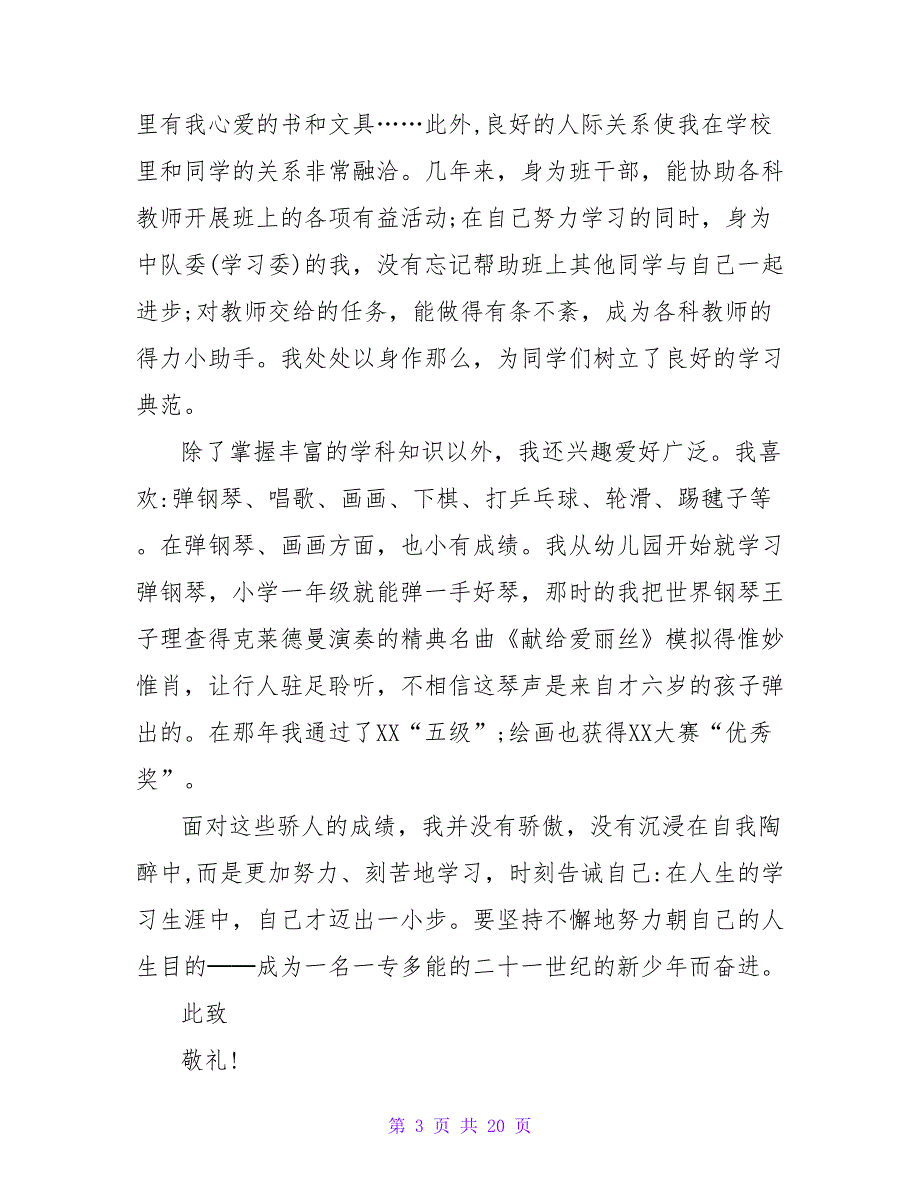 里有我心爱的书和文具……此外,良好的人际关系使我在学校
里和同学的关系非常融洽。几年来，身为班干部，能协助各科
教师开展班上的各项有益活动;在自己努力学习的同时，身为
中队委(学习委)的我，没有忘记帮助班上其他同学与自己一起
进步;对教师交给的任务，能做得有条不紊，成为各科教师的
得力小助手。我处处以身作那么，为同学们树立了良好的学习
典范。
除了掌握丰富的学科知识以外，我还兴趣爱好广泛。我喜
欢:弹钢琴、唱歌、画画、下棋、打乒乓球、轮滑、踢毽子等
。在弹钢琴、画画方面，也小有成绩。我从幼儿园开始就学习
弹钢琴，小学一年级就能弹一手好琴，那时的我把世界钢琴王
子理查得克莱德曼演奏的精典名曲《献给爱丽丝》模拟得惟妙
惟肖，让行人驻足聆听，不相信这琴声是来自才六岁的孩子弹
出的。在那年我通过了XX“五级”;绘画也获得XX大赛“优秀
奖”。
面对这些骄人的成绩，我并没有骄傲，没有沉浸在自我陶
醉中,而是更加努力、刻苦地学习，时刻告诫自己:在人生的学
习生涯中，自己才迈出一小步。要坚持不懈地努力朝自己的人
生目的──成为一名一专多能的二十一世纪的新少年而奋进。
此致
敬礼!
第 3 页 共 20 页